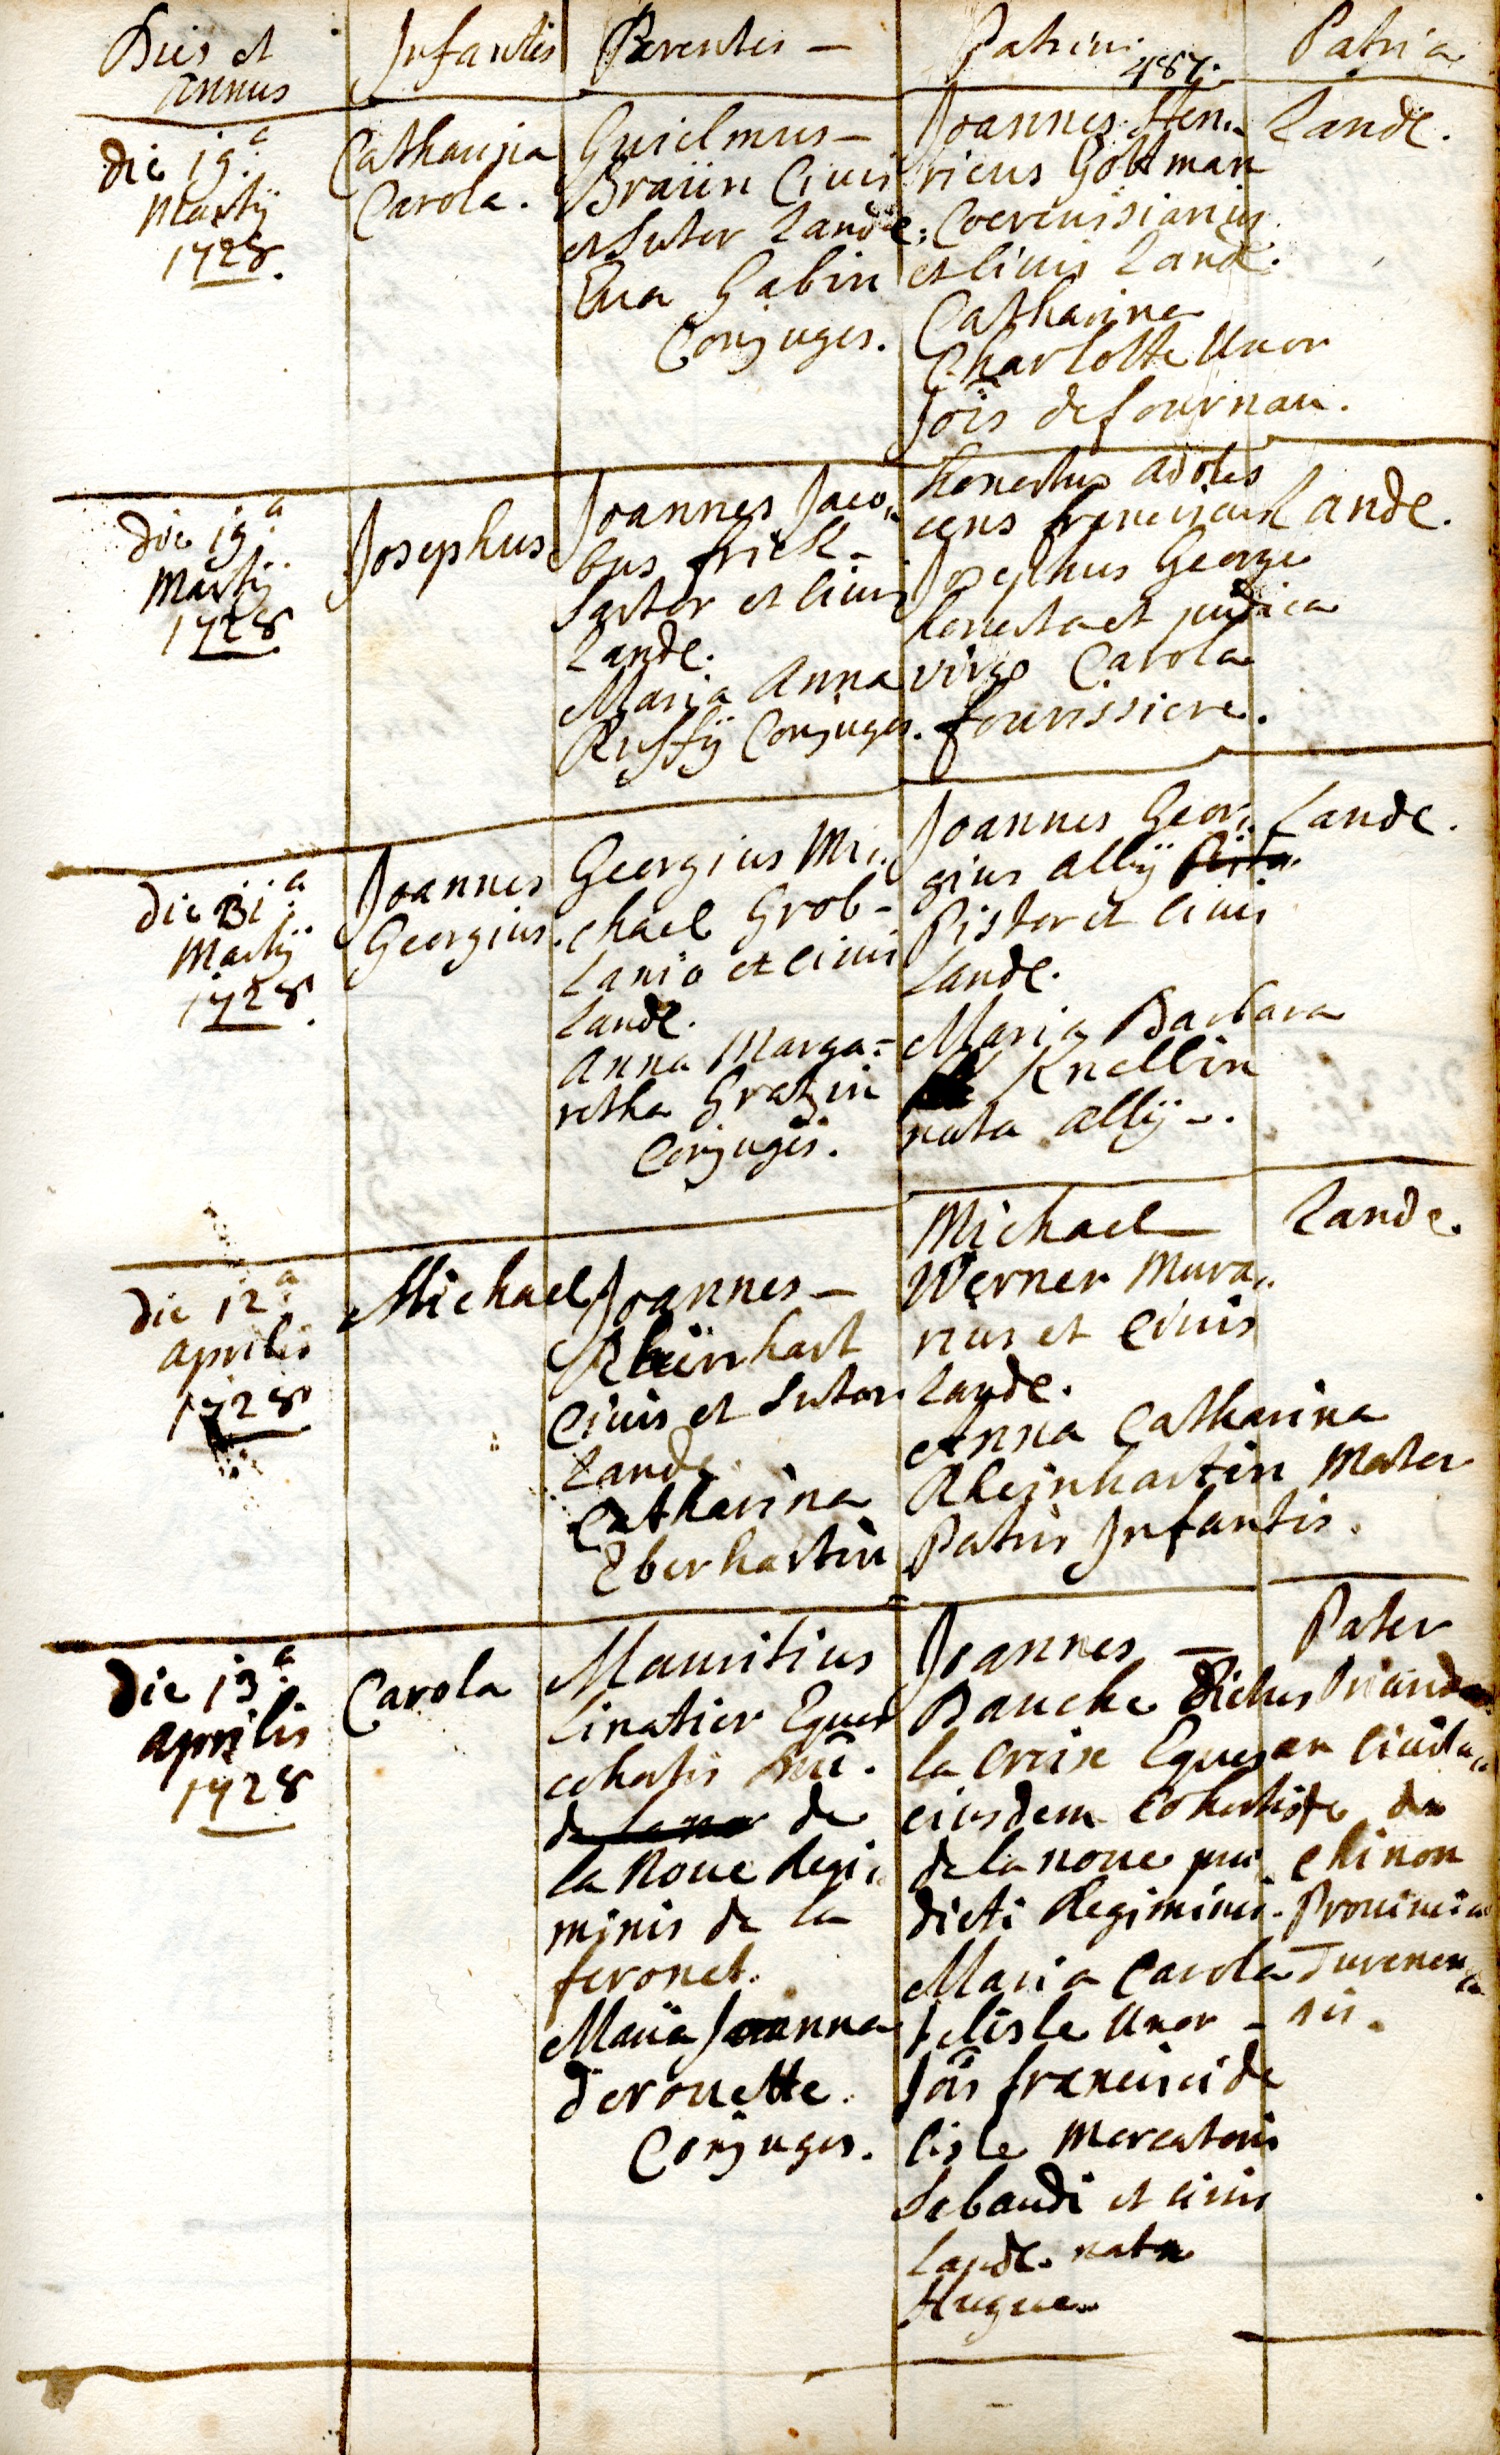 Dies et
Annus
Infantis
Parentes -
Patrini.
487.
Patria
die 19.a
Martÿ
1728.
Catharina
Carola.
Guielmus -
Braün Civis
et Sutor Landæ.
Eva Gabin
Conjuges.
Joannes Hen:
ricus Gottman
Coerevisiarius
et Civis Landæ.
Catharina
Charlotte Uxor
Jois defournau.
Landæ.
die 19.a
Martÿ
1728
Josephus
Joannes Jaco:
bus frick -
Sartor et Civis
Landæ.
Maria Anna
Ruffÿ Conjuges.
honestus adoles
cens franciscus
Josephus George
honesta et pudica
virgo Carola
fourissiere.
Landæ.
die 31.a
Martÿ
1728.
Joannes
Georgius.
Georgius Mi:
chael Grob -
Lanio et Civis
Landæ.
Anna Marga:
retha Gratzin
Conjuges.
Joannes Geor:
gius Allÿ
Pistor et Civis
Landæ.
Maria Barbara
Knellin
nata Allÿ -.
Landæ.
die 12.a
Aprilis
1728
Michael
Joannes -
Rheinhart
Civis et Sutor
Landæ.
Catharina
Eberhartin
Michael
Werner Mura:
rius et Civis
Landæ.
Anna Catharina
Rheinhartin Mater
Patris Infantis.
Landæ.
die 13.a
Aprilis
1728
Carola
Mauritius
Linatier Eques
cohortis Dni.
de la noue de
la Noue Regi:
minis de la
feronet.
Maria Joanna
Derouette.
Conjuges.
Joannes -
Bauche Dictus
la Croix Eques
eiusdem Cohortis
de la noue præ
dicti Regiminis.
Maria Carola
delisle Uxor -
Jois francisci de
lisle Mercatoris
Sabaudi et Civis
Landæ. nata
Hugue.
Pater
oriund
ex Civita:
te de
Chinon
Provincia
Turenen
sis.